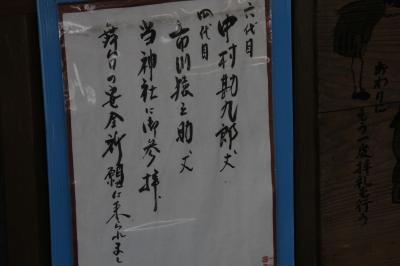 六代目
中村勘九郎丈
四代目
市川猿之助丈
当神社に御参拝
舞台の安全祈願に来られまし
おわりに
もう一度拝礼を行う